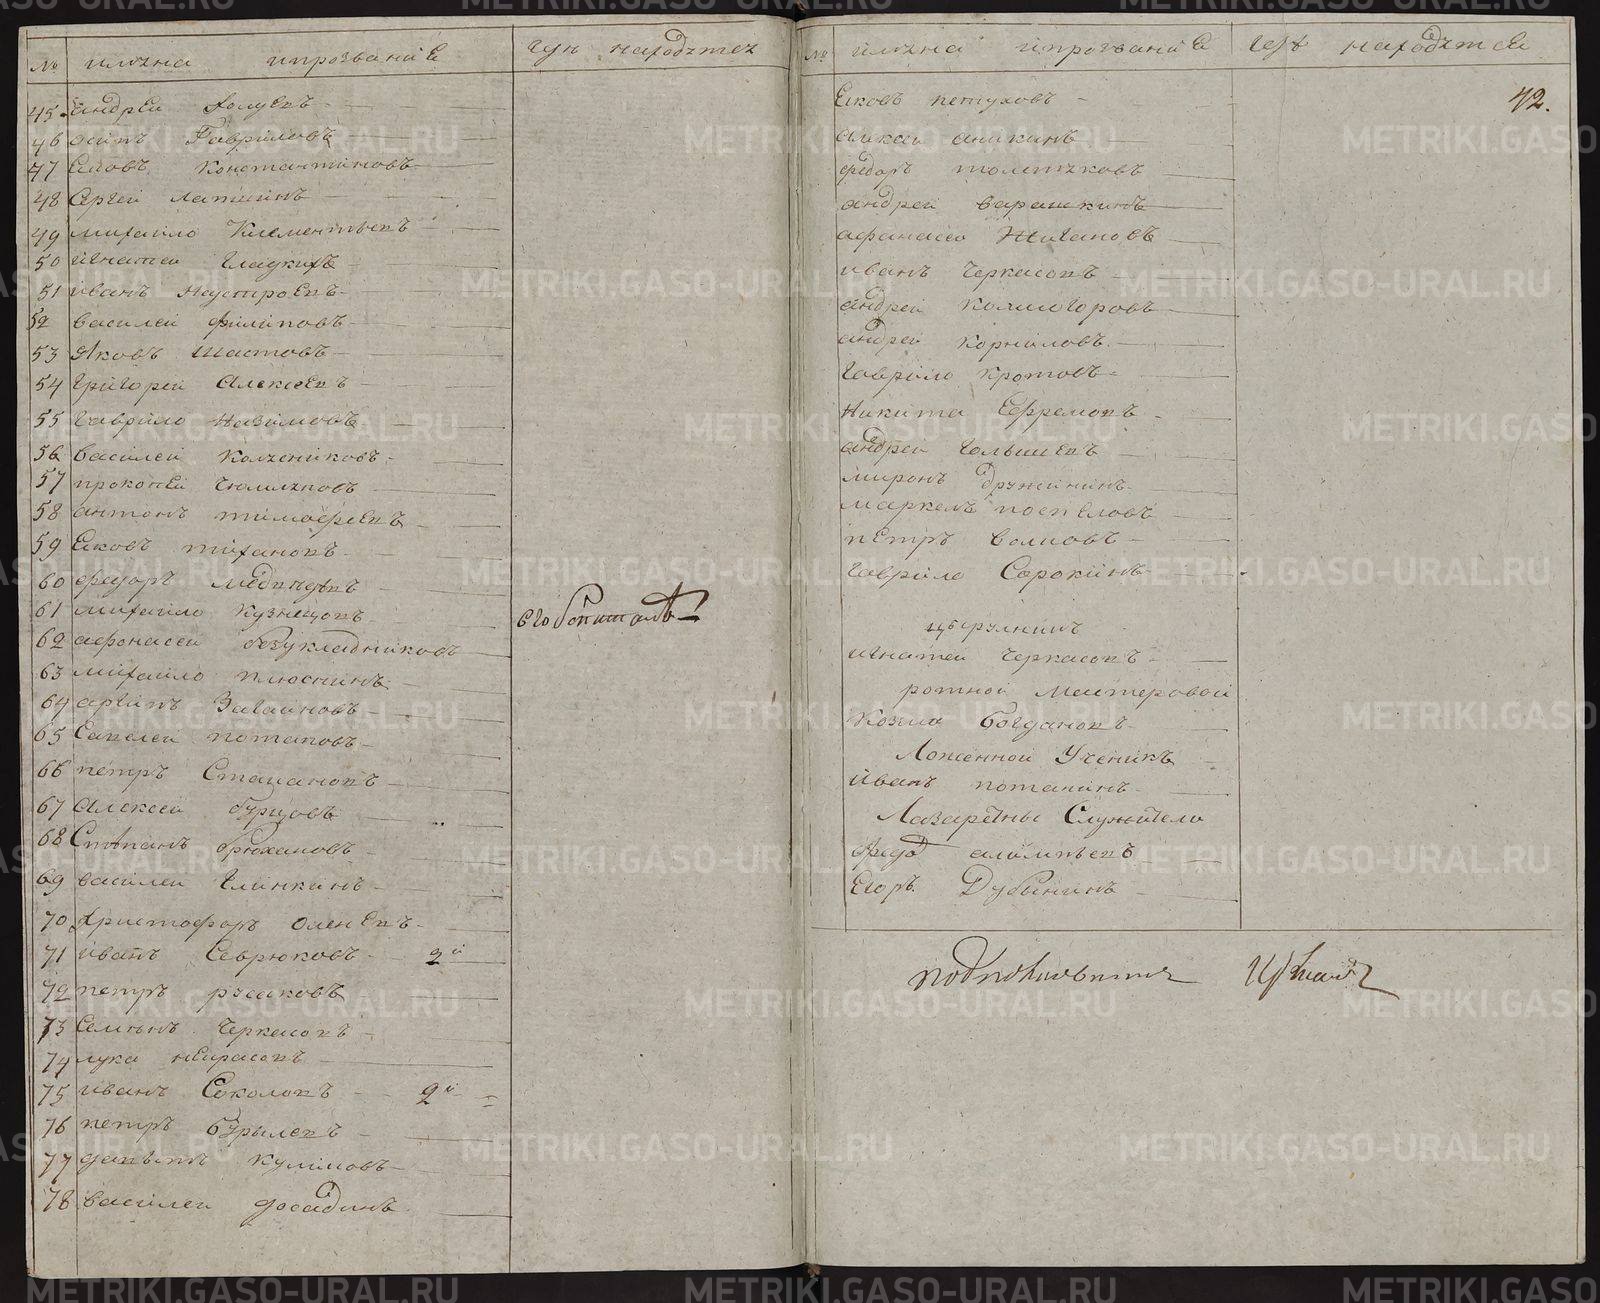 № имяна ипрозвание гдѣ находятся
45 андрей Холуевъ
46 осипъ Гавриловъ
47 Ековъ Константиновъ
48 Сергей Лапшинъ
49 михайло Клементьевъ
50 игнатеи гладкихъ
51 иванъ Неустроевъ
52 василеи филиповъ
53 Яковъ Шастовъ
54 григореи Алексеевъ
55 гаврило Назимовъ
56 василеи Колчениковъ
57 прокопеи
58 антонъ тимофеевъ
59 Ековъ тихановъ
60 федоръ медведевъ
61 михаило кузнецовъ
62 афонасеи безукладниковъ
63 михаило плюснинъ
64 архипъ Загаиновъ
65 Савелеи потаповъ
66 петръ Стахановъ
67 Алексеи бурцовъ
68 Степанъ брюхановъ
69 василеи глинкинъ
70 Христофоръ оленевъ
71 иванъ Севрюковъ 2й
72 петръ русаковъ
73 Семенъ черкасовъ
74 лука некрасовъ
75 иванъ Соколовъ 2й
76 петръ бурылевъ
77 куликовъ
78 василеи досадинъ
вгобспитале
№ имяна ипрозвание гдѣ находятся
42.
Ековъ петуховъ
алексеи аникинъ
федоръ толмачковъ
андреи варашкинъ
афанасеи Жигановъ
иванъ черкасовъ
андреи коллогоровъ
андреи корниловъ
гаврило кротовъ
Никита Ефремовъ
андреи голышевъ
миронъ дружининъ
маркелъ поспеловъ
петръ волковъ
гаврило Сорокинъ
цырулникъ
игнатеи черкасовъ
ротнои мастеровои
Козма богдановъ
Ложеннои Ученикъ
иванъ потанинъ
Лазаретны Служители
федо
Егоръ Дубининъ
подполковникъ
METRIKI.GASO-URAL.RU